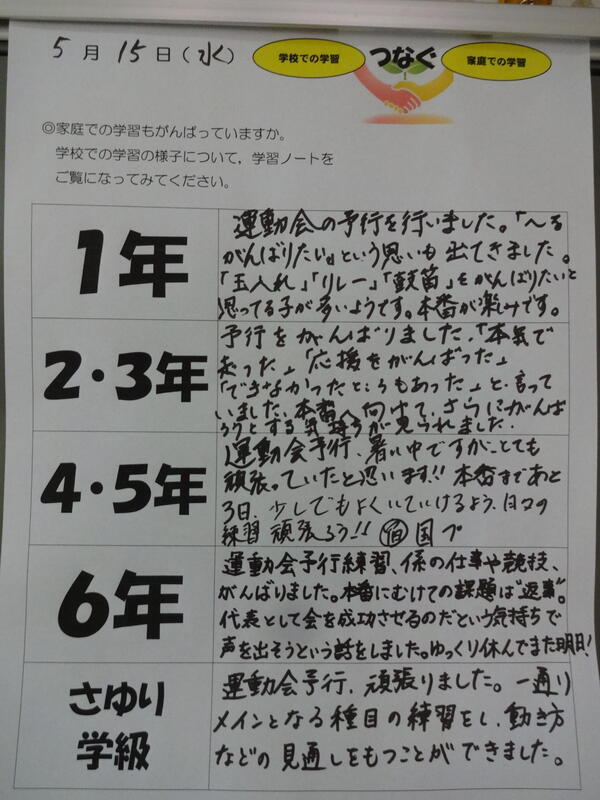 5月15日(水)
学校での学習
つなぐ
家庭での学習
◎家庭での学習もがんばっていますか。
学校での学習の様子について，学習ノートを
ご覧になってみてください。
1年
運動会の予行を行いました。「〜る
がんばりたい」という思いも出てきました。
「玉入れ」「リレー」「鼓笛」をがんばりたいと
思ってる子が多いようです。本番が楽しみです。
2・3年
予行をがんばりました。「本気で
走った」「応援をがんばった」
「できなかったところもあった」と言って
いました。本番へ向けて、さらにがんば
ろうとする気持ちが見られました。
4・5年
運動会予行、暑い中ですが、とても
頑張っていたと思います!! 本番まであと
3日、少しでもよくしていけるよう、日々の
練習頑張ろう!! 宿 国プ
6年
運動会予行練習、係の仕事や競技、
がんばりました。本番にむけての課題は“返事”。
代表として会を成功させるのだという気持ちで
声を出そうという話をしました。ゆっくり休んでまた明日!
さゆり
学級
運動会予行、頑張りました。一通り
メインとなる種目の練習をし、動き方
などの見通しをもつことができました。